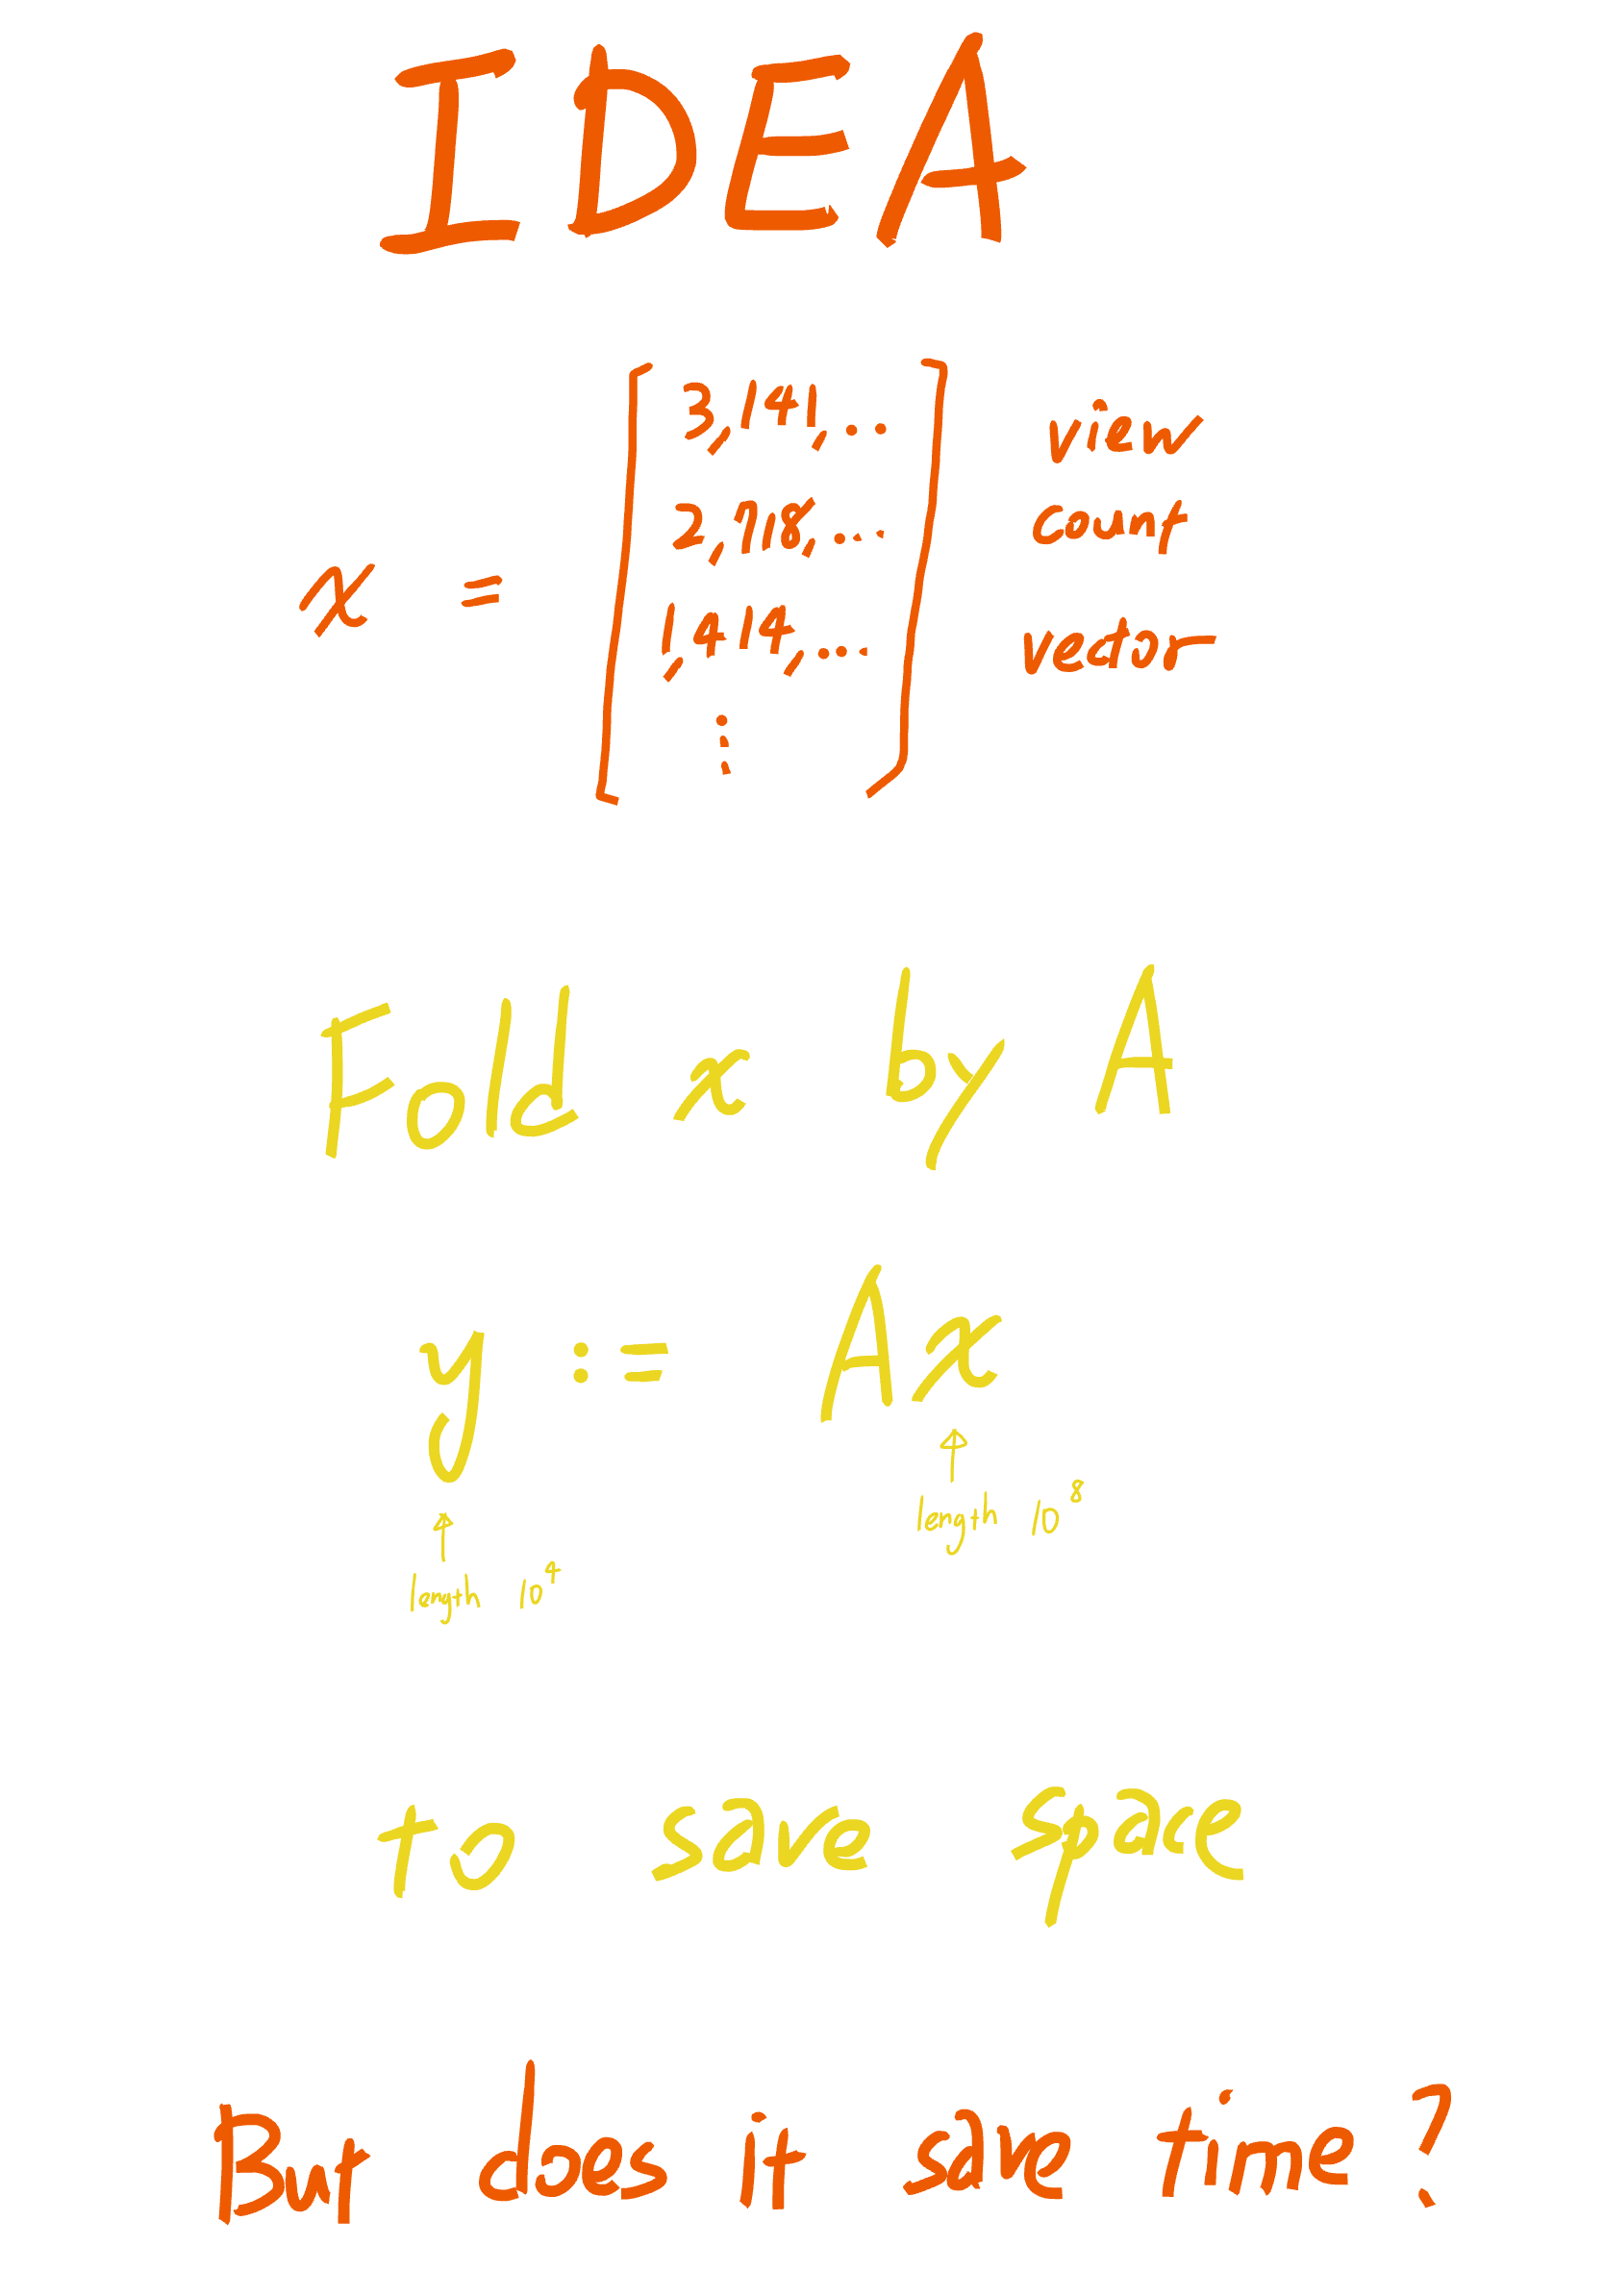 IDEA
x = [ 3,141,.. view
2,718,... count
1,414,... vector
⋮ ]
Fold x by A
y := Ax
length 10^8
length 10^4
to save space
But does it save time?